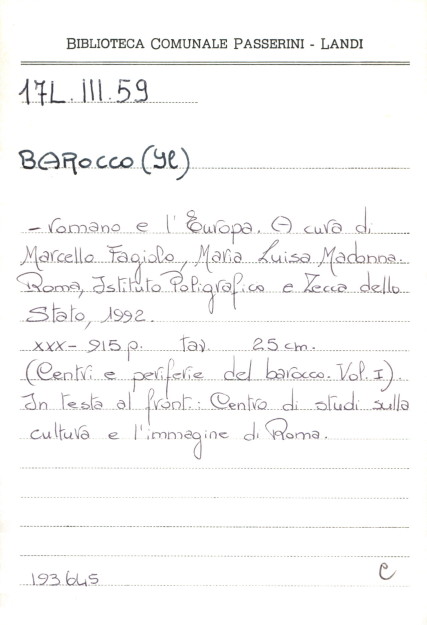 BIBLIOTECA COMUNALE PASSERINI - LANDI
17L.III.59
BAROCCO (Il)
- romano e l'Europa. A cura di
Marcello Fagiolo, Maria Luisa Madonna.
Roma, Istituto Poligrafico e Zecca dello
Stato, 1992.
XXX- 915 p. tav. 25 cm.
(Centri e periferie del barocco. Vol. I).
In testa al front.: Centro di studi sulla
cultura e l'immagine di Roma.
193645 C